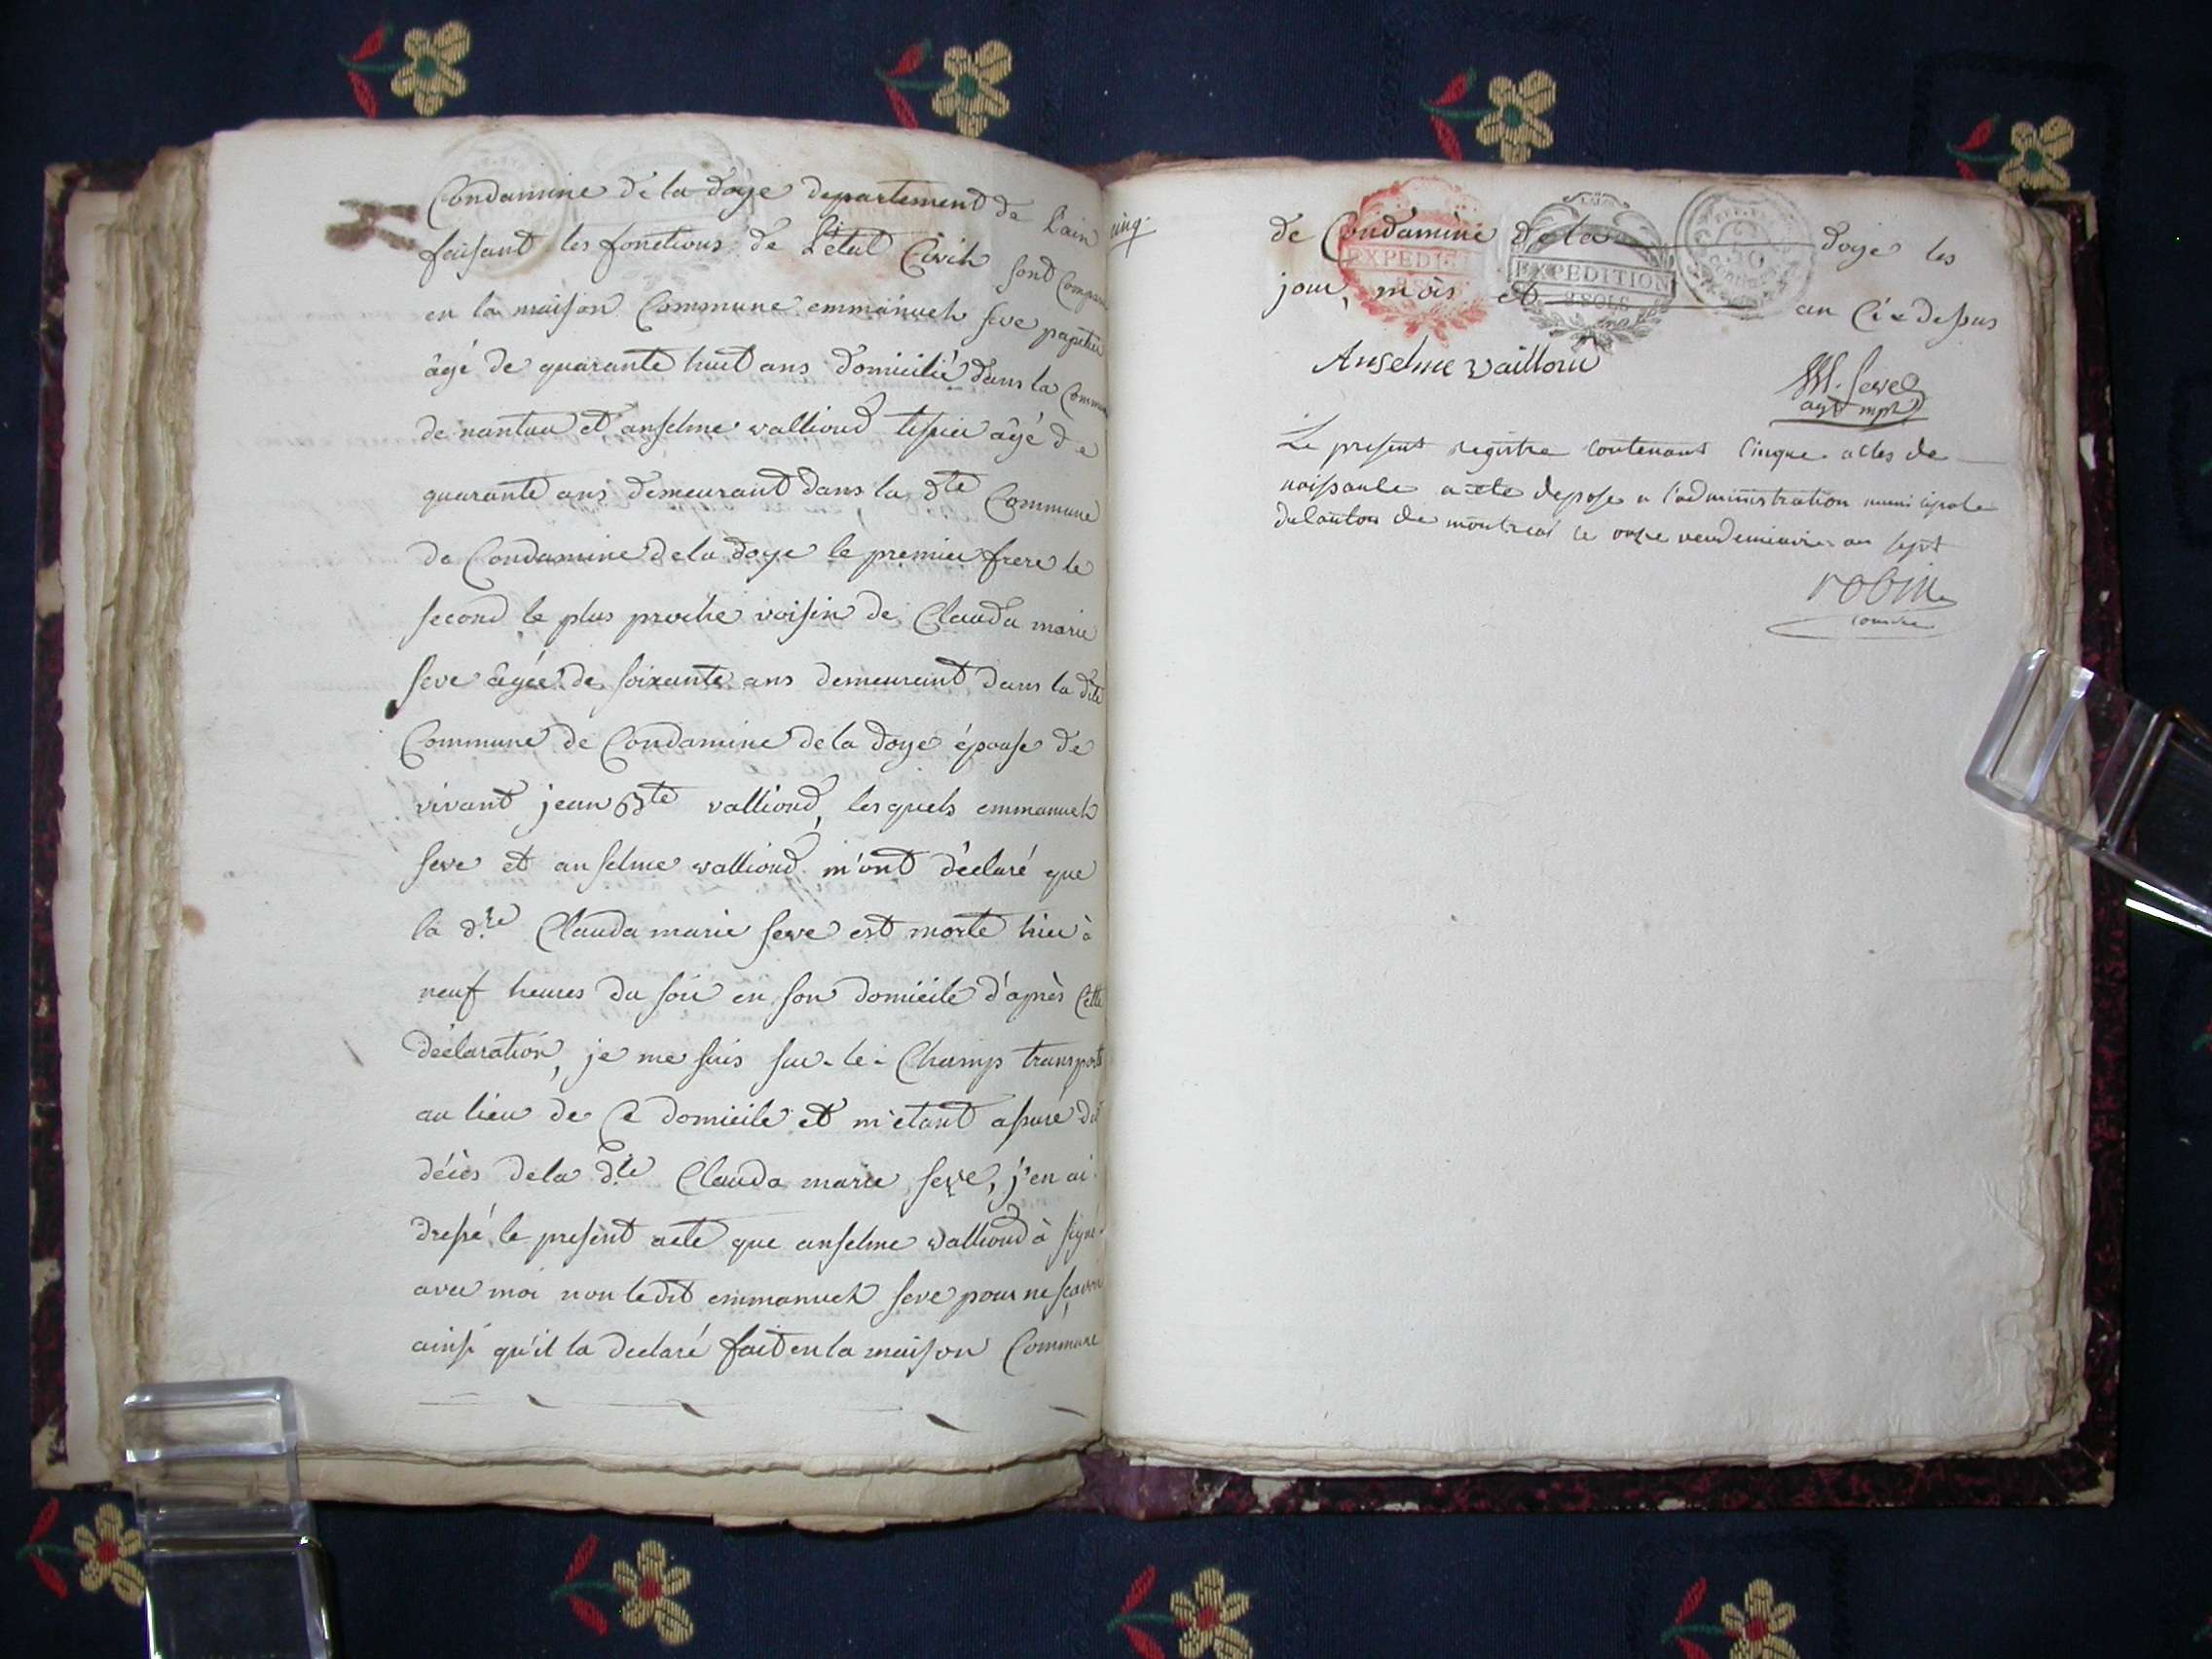 Condamine de la doye departement de Lain
faisant les fonctions de L'etat Civil sont Comparu
en la maison Commune emmanuel seve papetier
âgé de quarante huit ans domicilié dans la Commune
de nantua et anselme vallioud tisier âgé de
quarante ans demeurant dans la dte Commune
de Condamine de la doye le premier frere le
second le plus proche voisin de Clauda marie
seve âgée de soixante ans demeurant dans la dte
Commune de Condamine de la doye épouse de
vivant jean Bte vallioud, les quels emmanuel
seve et anselme vallioud m'ont déclaré que
la dte Clauda marie seve est morte hier à
neuf heures du soir en son domicile d'après Cette
déclaration, je me suis sur-le-Champ transporté
au lieu de Ce domicile et m'etant assuré du
décès de la dte Clauda marie seve, j'en ai
dressé le present acte que anselme vallioud à signé
avec moi non ledit emmanuel seve pour ne sçavoir
ainsi qu'il la declaré fait en la maison Commune
cinq
de Condamine de la doye les
jour, mois et an Ci-dessus
EXPEDITION
EXPEDITION
2 SOLS
50
Anselme Vailloud
M. Seve
agt mpl
Le present registre contenant Cinque actes de
naissance a ete depose a l'administration municipale
du Canton de montreal le onze vendemiaire an sept
robin